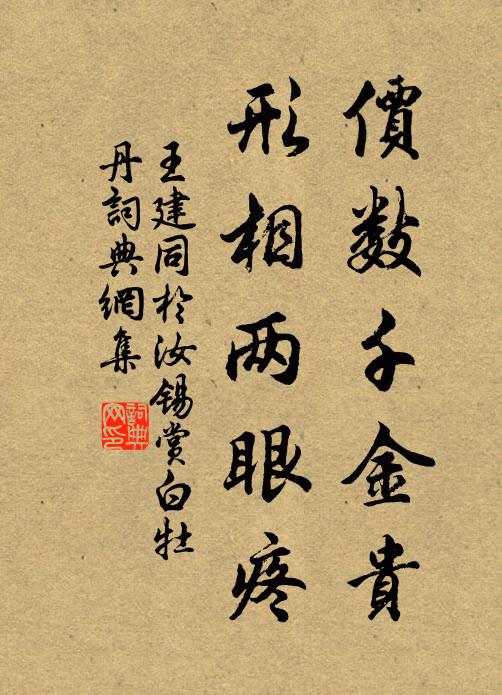 價數千金貴
形相两眼疼
王建同於汝錫賞白牡
丹詞典網集
詞典
网印